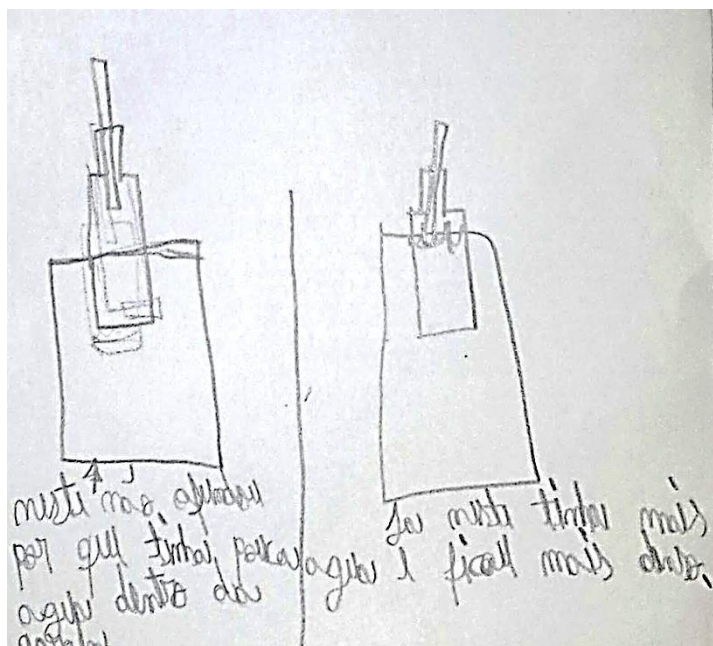 neste não afundou
por que tinha pouca
agua dentro da
Ja neste tinha mais
agua e ficou mais denso.